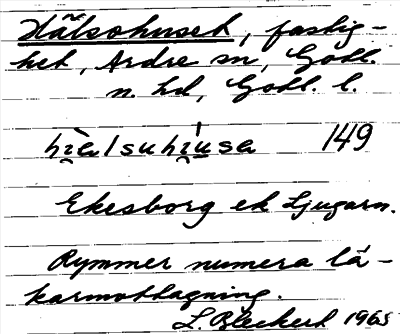 Hälsohuset, fastig-
het, Ardre sn, Gotl.
n. hd, Gotl. l.
hı̯̀alsuhı̯́u̠sa 149
Ekesborg ek Ljugarn.
Rymmer numera lä-
karmottagning.
L. Bleckert 1965